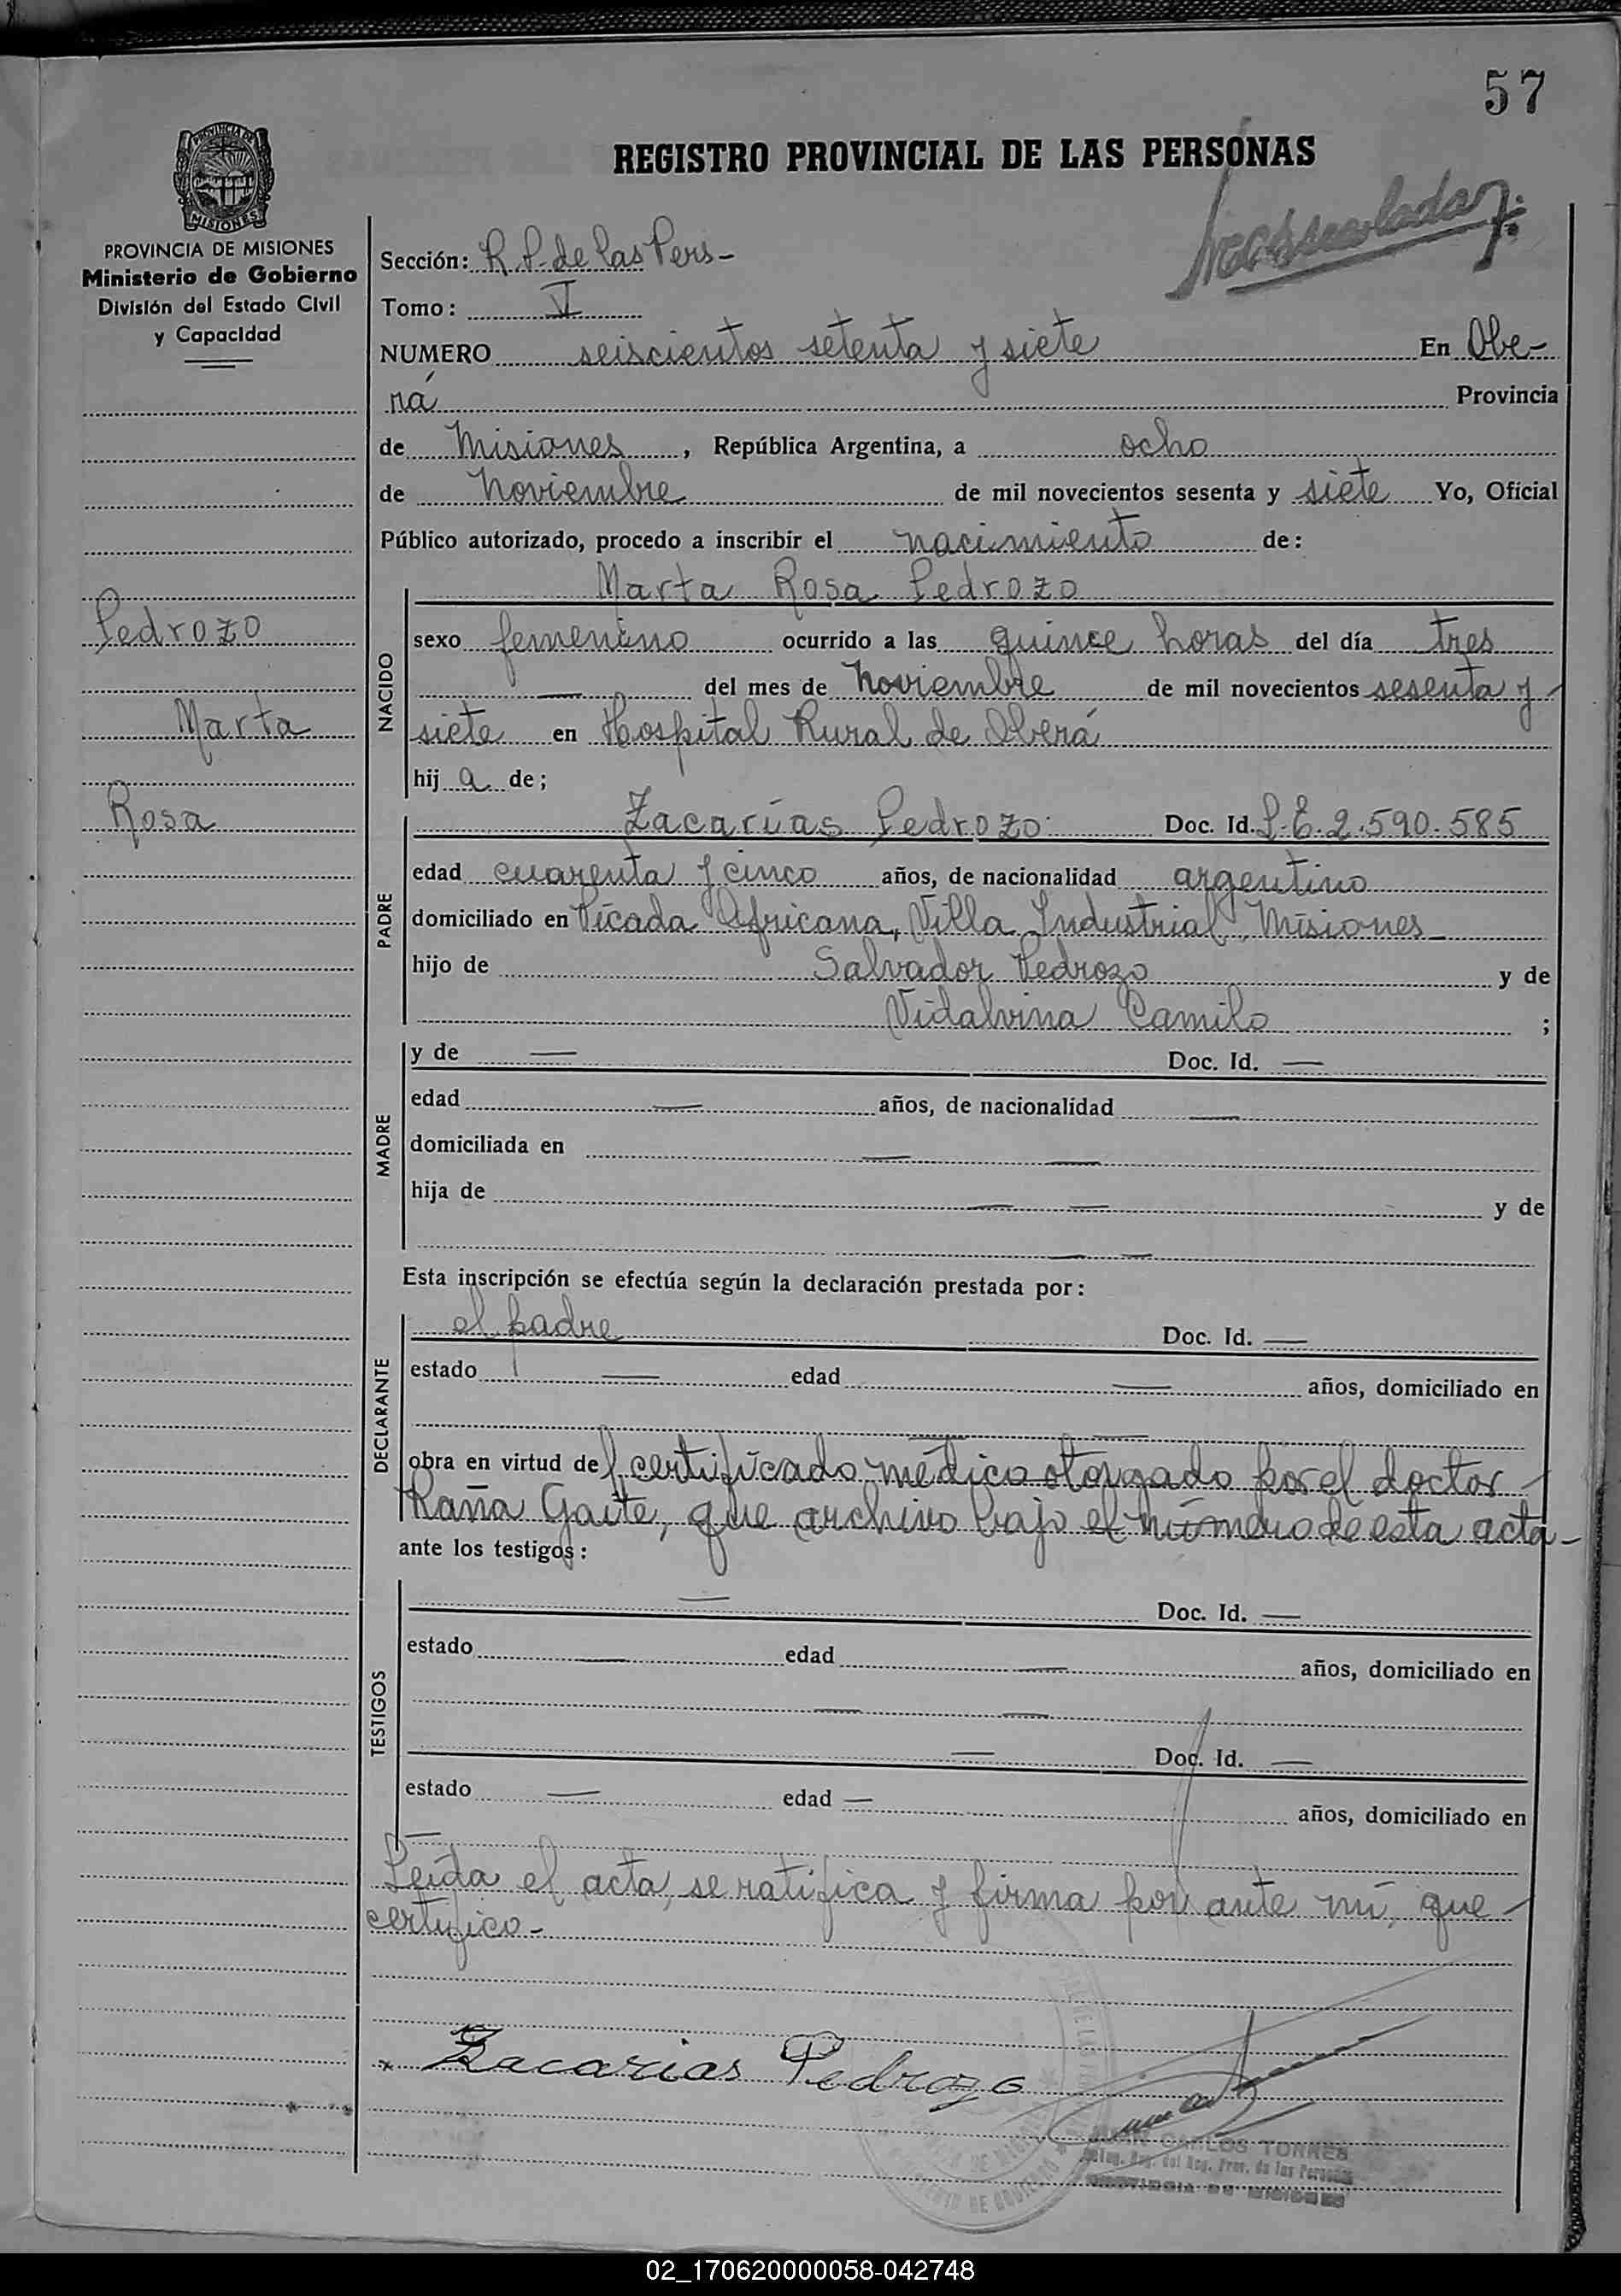 57
REGISTRO PROVINCIAL DE LAS PERSONAS
PROVINCIA DE
MISIONES
PROVINCIA DE MISIONES
Ministerio de Gobierno
División del Estado Civil
y Capacidad
Sección: R. P. de las Pers-
Tomo: V
NUMERO seiscientos setenta y siete En Obe-
rá Provincia
de Misiones, República Argentina, a ocho
de Noviembre de mil novecientos sesenta y siete Yo, Oficial
Público autorizado, procedo a inscribir el nacimiento de:
Marta Rosa Pedrozo
Pedrozo
Marta
Rosa
NACIDO
sexo femenino ocurrido a las quince horas del día tres
— del mes de Noviembre de mil novecientos sesenta y
siete en Hospital Rural de Oberá
hij a de;
PADRE
Zacarías Pedrozo Doc. Id. L. E. 2.590.585
edad cuarenta y cinco años, de nacionalidad argentino
domiciliado en Picada Africana, Villa Industrial, Misiones
hijo de Salvador Pedrozo y de
Vidalvina Camilo ;
MADRE
y de — Doc. Id. —
edad — años, de nacionalidad —
domiciliada en — —
hija de — — y de
— —
Esta inscripción se efectúa según la declaración prestada por:
DECLARANTE
el padre Doc. Id. —
estado — edad — años, domiciliado en
— —
obra en virtud del certificado médico otorgado por el doctor
Raña Gaite, que archivo bajo el número de esta acta-
ante los testigos:
TESTIGOS
— Doc. Id. —
estado — edad — años, domiciliado en
— —
— Doc. Id. —
estado — edad — años, domiciliado en
—
Leída el acta, se ratifica y firma por ante mí, que
certifico-
Zacarias Pedrozo
JUAN CARLOS TORRES
del Reg. Prov. de las Personas
PROVINCIA DE MISIONES
02_170620000058-042748